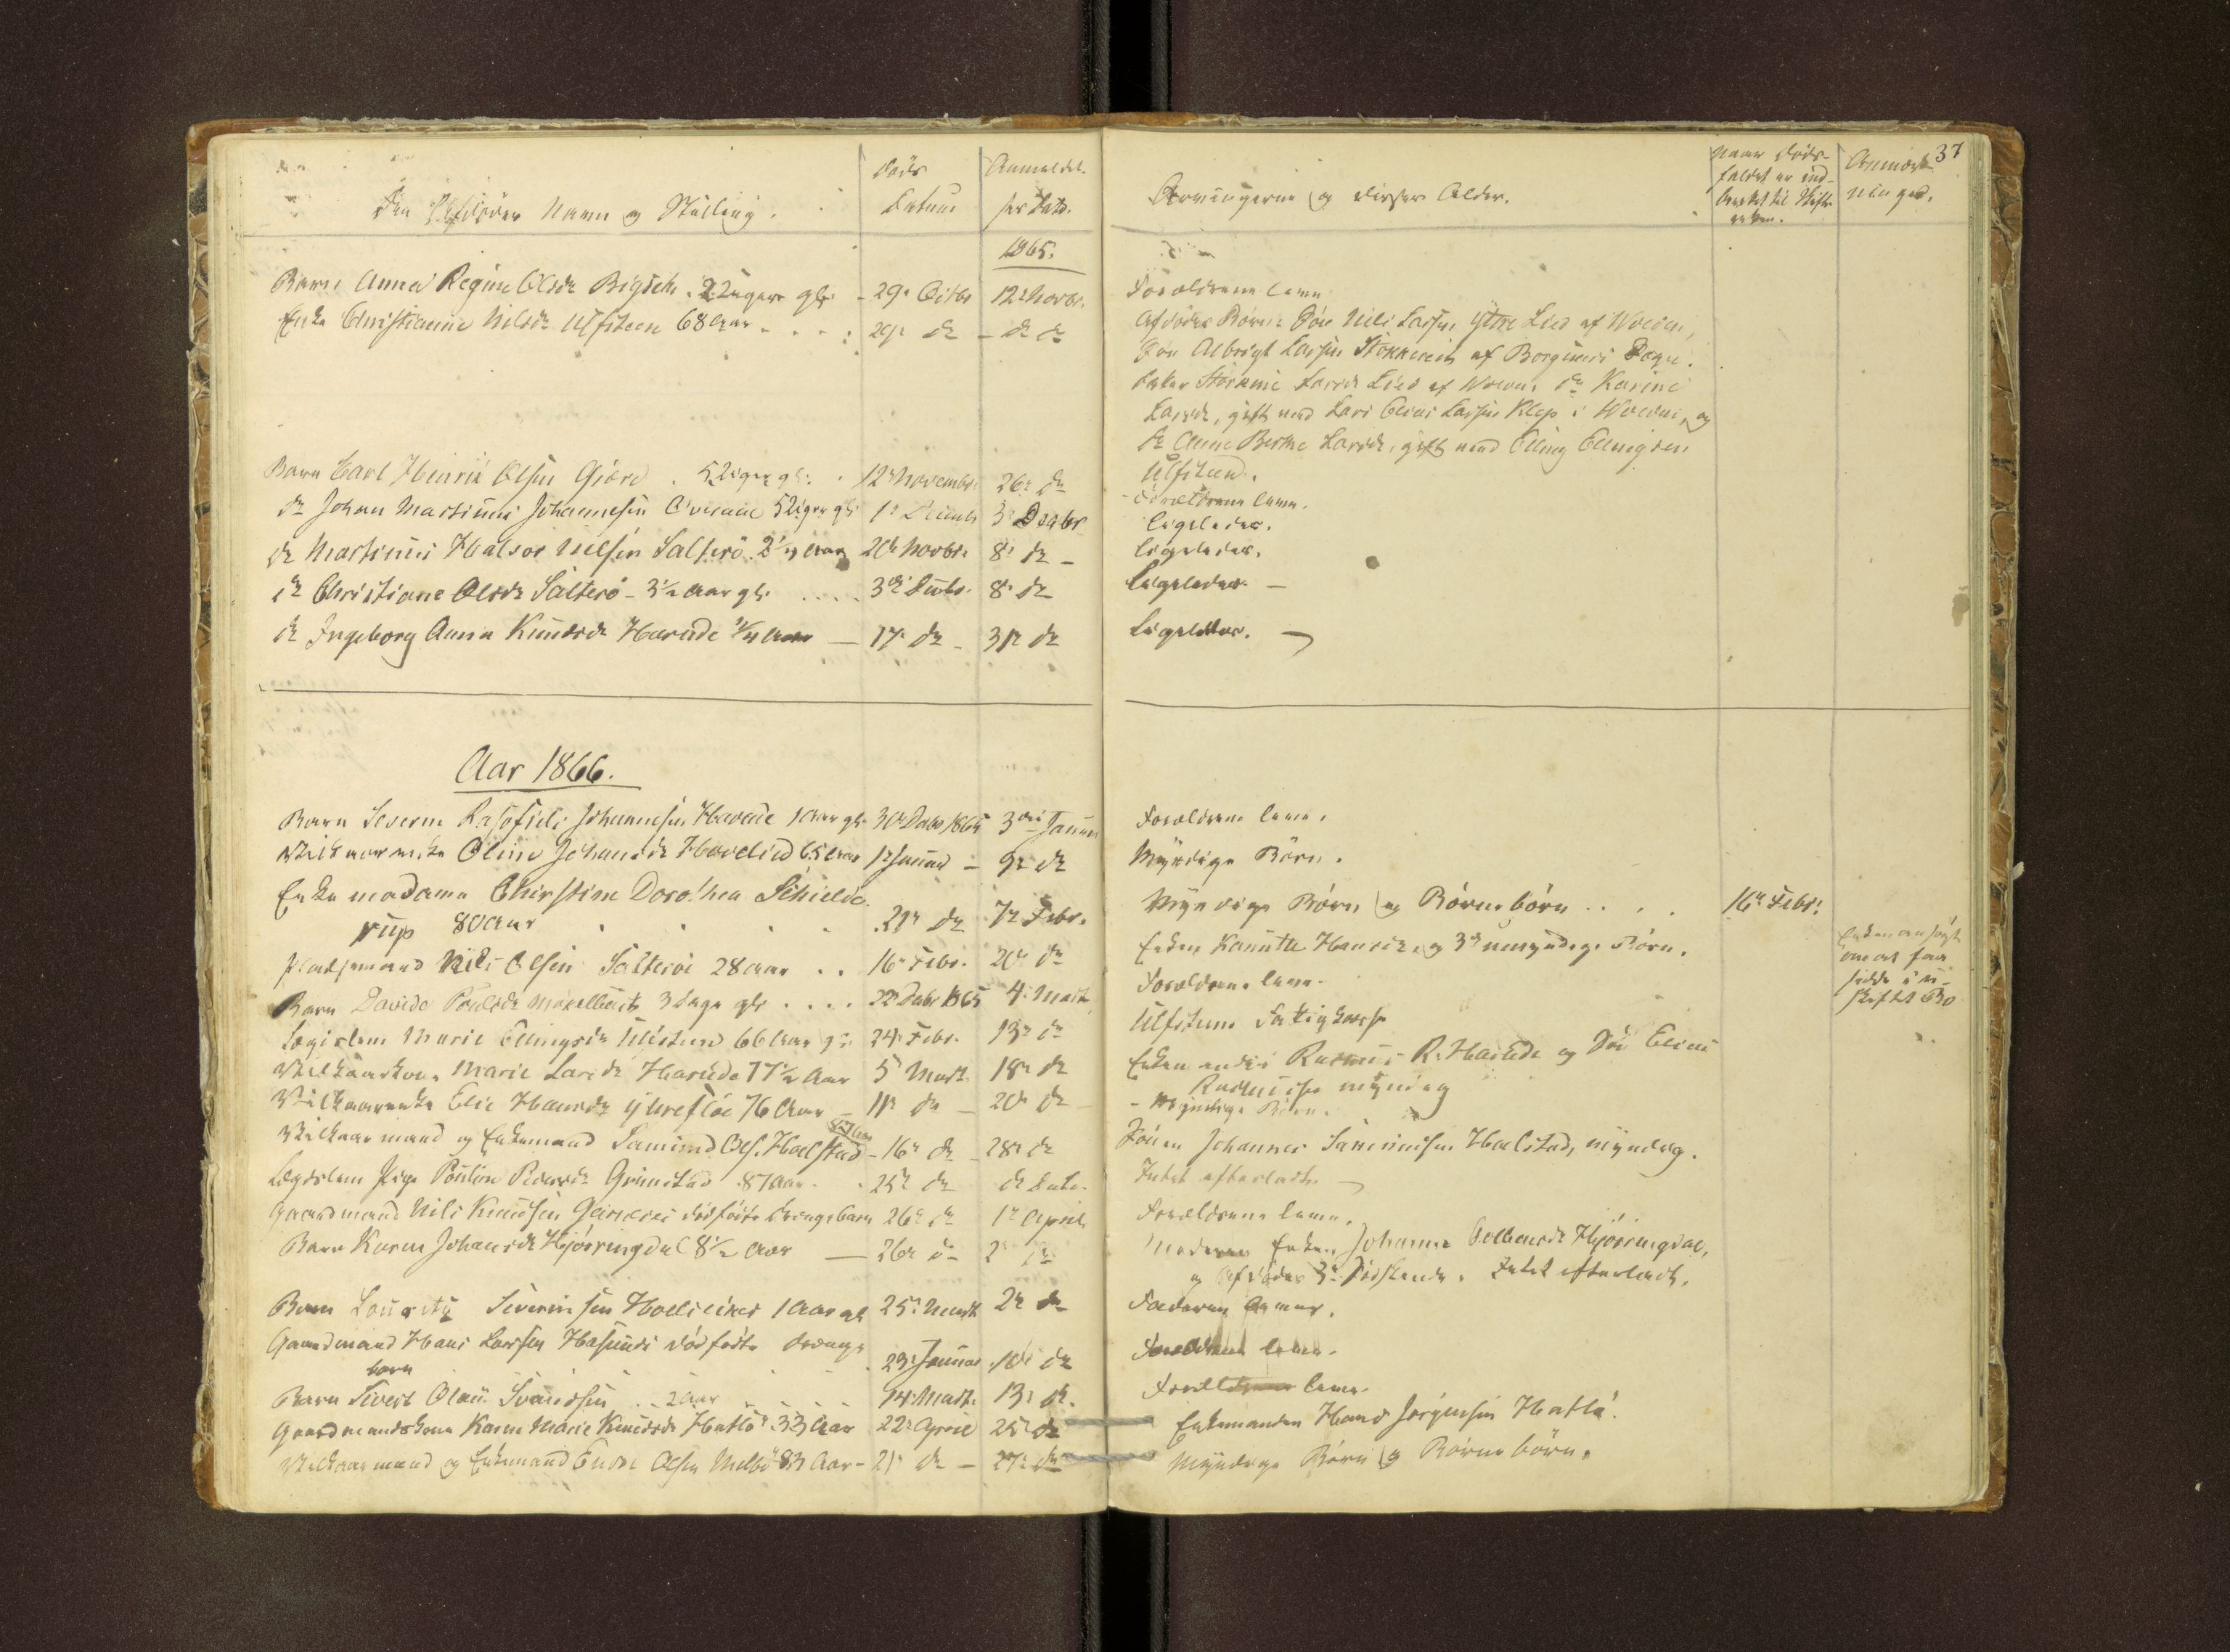 37
Den Afdødes Navn og Stilling.
Døds
Datum
Anmeldel.
ses Dato.
Arvingerne og disses Alder.
Naar Døds-
faldet er ind-
berettet til Skifte-
retten.
Anmærk-
ninger.
1865.
Barn Anna Regine Olsdr 2 Uger gl. - 29e Octbr 12e Novbr.
Forældrene leve
Enke Christianne Nilsdr Ulfsteen 68 Aar - 29e do - do do
Afdødes Børn: Søn Nils Larsen Ytre Lied af Volden,
Søn Albrigt Larsen af Borgunds Sogn.
Larsdr Lied af Do Karine
Larsdr, gift med Lars Elias Larsen Klep i Volden, og
do Anne Berthe Larsdr, gift med Elling Ellingsen
Ulfsteen.
Barn Carl Henrik Olsen 5 Uger gl. 12e Novembr. 26e do
Forældrene leve.
do Johan Martinus Johannesen 5 Uger gl 1e Decemb 3e Decbr
Ligeledes.
do Martinus Halvor Nilsen Salterø 2 1/4 Aar 20e Novbr. 8e do -
Ligeledes.
do Christiane Olsdr Salterø - 3 1/2 Aar gl. 3die Decbr. 8e do
Ligeledes -
do Ingeborg Anna Knudsdr Hareide 1/4 Aar - 17e do - 31e do
Ligeledes.
Aar 1866.
Barn Severin Johannesen Hareide 1 Aar gl. 30e Decbr 1865 3die Januar
Forældrene leve.
Vilkaarenke Oline Johansdr Hovelied 65 Aar 1e Januar - 9e do
Myndige Børn.
Enkemadame Christine Dorothea Schielde-
rup 80 Aar 29e do 7e Febr.
Myndige Børn og Børnebørn . . . . 16e Febr.
Pladsmand Nils Olsen Salterøe 28 Aar . . 16e Febr. 20e do
Enken Hansdr og 3de umyndige Børn.
Enken ansøgt
om at faa
sidde i u-
skiftet Bo
Barn Davide 3 Dage gl. . . . . 22 Decbr 1865 4e Marts
Forældrene leve.
Lægdslem Marie Ellingsdr Ulfsteen 66 Aar gl. 24e Febr. 13e do
Ulfsteens Fattigkasse
Vilkaarskone Marie Larsdr Hareide 77 1/2 Aar 5e Marts 18e do
Enkemand Rasmus R. Hareide og Søn Elias
Rasmussen myndig
Vilkaarenke Elie Hansdr Yttrefløe 76 Aar - 11e do - 20e do
- Myndige Børn.
Vilkaarmand og Enkemand Samund Ols. Holstad - 16e do - 28e do
Sønnen Johannes Holstad, myndig.
Lægdslem Pige Pouline Pedersdr Grimstad 87 Aar - 25e do do Dato.
Intet efterladt.
Gaardmand Nils Knudsen dødfødte Drengebarn 26e do 1e April
Forældrene leve.
Barn Karen Johansdr Hjørringdal 8 1/2 Aar - 26e do 2e do
Moderen Enken Johanne Hjørringdal,
og Afdødes 3e Sødskende. Intet efterladt.
Barn Severinsen 1 Aar gl 25e Marts 2e do
Faderen lever.
Gaardmand Hans Larsen Hasund dødfødte Drenge-
barn 23e Januar 10e do
Forældrene leve.
Barn Sivert Olaus 2 Aar 14e Marts 13e do.
Forældrene leve.
Gaardmandskone Karen Marie Knudsdr Hatlø 33 Aar 22e April 25e do
Enkemanden Hans Jørgensen Hatlø.
Vilkaarmand og Enkemand Endre Olsen Melbø 83 Aar - 21e do - 27e do
Myndige Børn og Børnebørn.